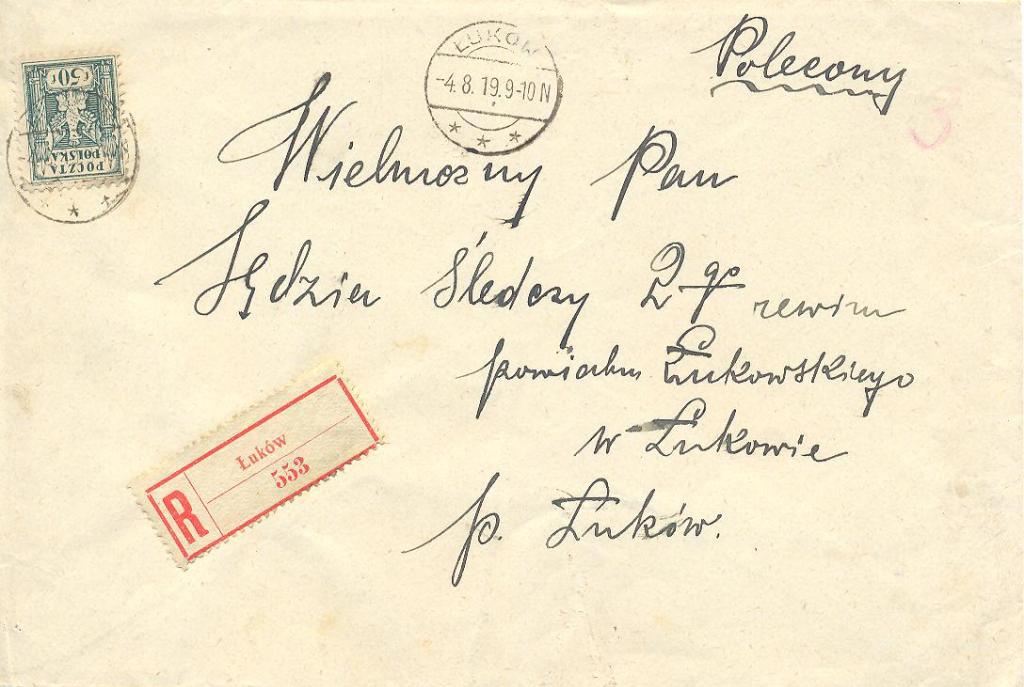 Polecony
ŁUKÓW
-4.8.19.9-10N
50 F
POCZTA
POLSKA
Wielmożny Pan
Sędzia Śledczy 2go rewiru
powiatu Łukowskiego
w Łukowie
p. Łuków.
R
Łuków
553